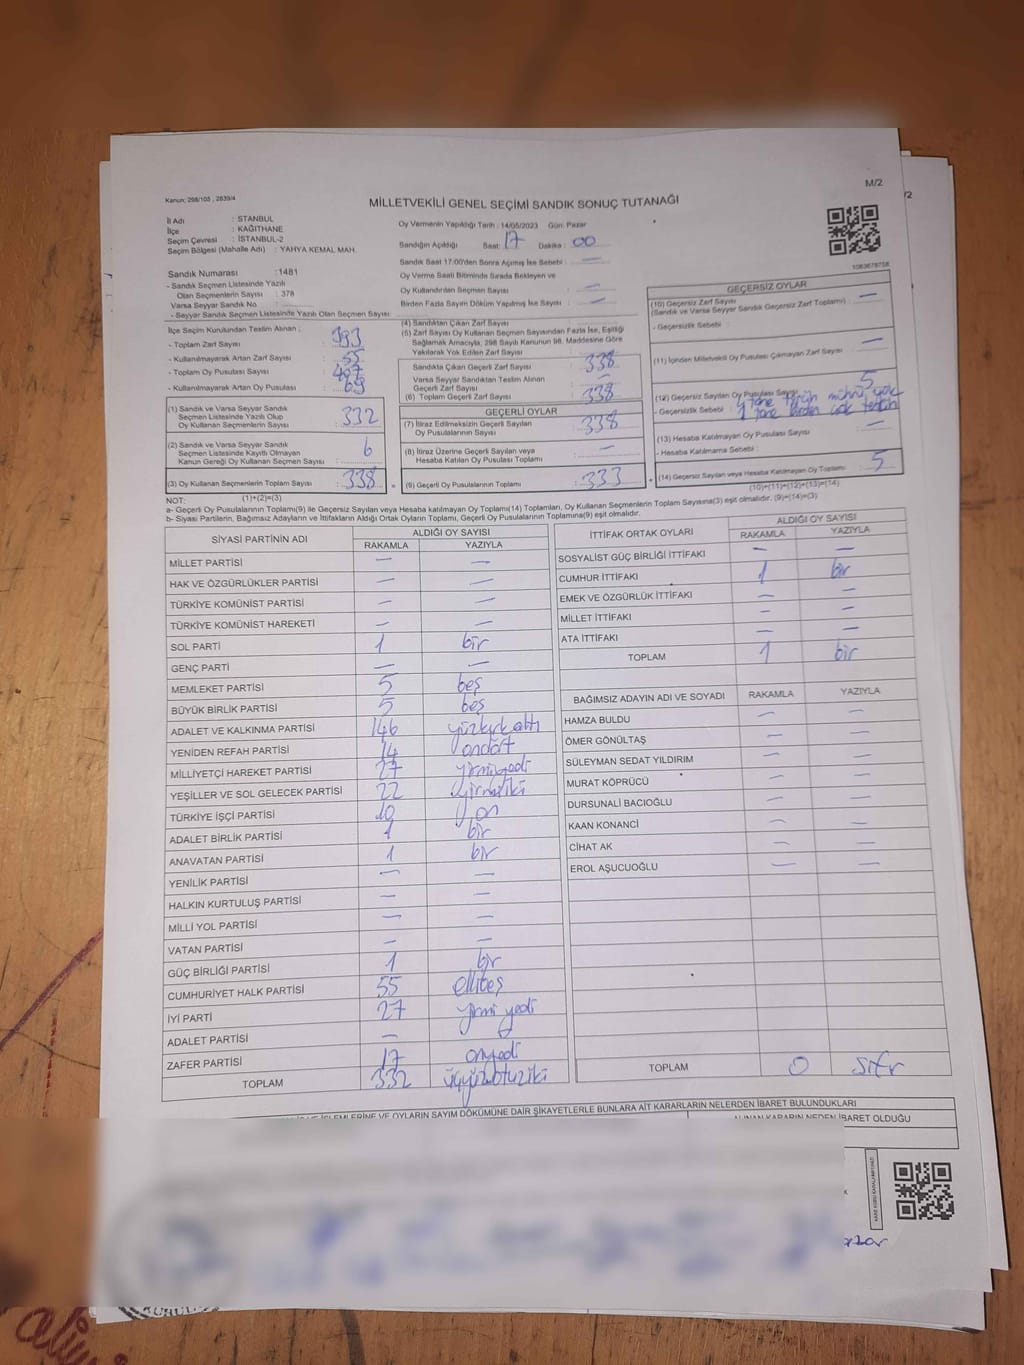 M/2
/2
Kanun; 298/105 , 2839/4
MİLLETVEKİLİ GENEL SEÇİMİ SANDIK SONUÇ TUTANAĞI
İl Adı : STANBUL
İlçe : KAĞITHANE
Seçim Çevresi : İSTANBUL-2
Seçim Bölgesi (Mahalle Adı) : YAHYA KEMAL MAH.
Sandık Numarası : 1481
- Sandık Seçmen Listesinde Yazılı
Olan Seçmenlerin Sayısı : 378
Varsa Seyyar Sandık No
- Seyyar Sandık Seçmen Listesinde Yazılı Olan Seçmen Sayısı
Oy Vermenin Yapıldığı Tarih : 14/05/2023 Gün: Pazar
Sandığın Açıldığı Saat: 17 Dakika : 00
Sandık Saat 17:00'den Sonra Açılmış İse Sebebi : —
Oy Verme Saati Bitiminde Sırada Bekleyen ve
Oy Kullandırılan Seçmen Sayısı : —
Birden Fazla Sayım Döküm Yapılmış İse Sayısı : —
1083678758
İlçe Seçim Kurulundan Teslim Alınan ;
- Toplam Zarf Sayısı : 393
- Kullanılmayarak Artan Zarf Sayısı : 55
- Toplam Oy Pusulası Sayısı : 407
- Kullanılmayarak Artan Oy Pusulası : 69
(1) Sandık ve Varsa Seyyar Sandık
Seçmen Listesinde Yazılı Olup
Oy Kullanan Seçmenlerin Sayısı : 332
(2) Sandık ve Varsa Seyyar Sandık
Seçmen Listesinde Kayıtlı Olmayan
Kanun Gereği Oy Kullanan Seçmen Sayısı : 6
(3) Oy Kullanan Seçmenlerin Toplam Sayısı : 338
(4) Sandıktan Çıkan Zarf Sayısı
(5) Zarf Sayısı Oy Kullanan Seçmen Sayısından Fazla İse, Eşitliği
Sağlamak Amacıyla, 298 Sayılı Kanunun 98. Maddesine Göre
Yakılarak Yok Edilen Zarf Sayısı
Sandıkta Çıkan Geçerli Zarf Sayısı : 338
Varsa Seyyar Sandıktan Teslim Alınan
Geçerli Zarf Sayısı : —
(6) Toplam Geçerli Zarf Sayısı : 338
GEÇERLİ OYLAR
(7) İtiraz Edilmeksizin Geçerli Sayılan
Oy Pusulalarının Sayısı : 338
(8) İtiraz Üzerine Geçerli Sayılan veya
Hesaba Katılan Oy Pusulası Toplamı : —
(9) Geçerli Oy Pusulalarının Toplamı : 333
GEÇERSİZ OYLAR
(10) Geçersiz Zarf Sayısı
(Sandık ve Varsa Seyyar Sandık Geçersiz Zarf Toplamı) : —
- Geçersizlik Sebebi :
(11) İçinden Milletvekili Oy Pusulası Çıkmayan Zarf Sayısı : —
(12) Geçersiz Sayılan Oy Pusulası Sayısı : 5
- Geçersizlik Sebebi : 4 tane tercih mührü yok
1 tane birden çok tercih
(13) Hesaba Katılmayan Oy Pusulası Sayısı : —
- Hesaba Katılmama Sebebi :
(14) Geçersiz Sayılan veya Hesaba Katılmayan Oy Toplamı : 5
NOT: (1)+(2)=(3) (10)+(11)+(12)+(13)=(14)
a- Geçerli Oy Pusulalarının Toplamı(9) ile Geçersiz Sayılan veya Hesaba katılmayan Oy Toplamı(14) Toplamları, Oy Kullanan Seçmenlerin Toplam Sayısına(3) eşit olmalıdır. (9)+(14)=(3)
b- Siyasi Partilerin, Bağımsız Adayların ve İttifakların Aldığı Ortak Oyların Toplamı, Geçerli Oy Pusulalarının Toplamına(9) eşit olmalıdır.
SİYASİ PARTİNİN ADI ALDIĞI OY SAYISI
RAKAMLA YAZIYLA
MİLLET PARTİSİ — —
HAK VE ÖZGÜRLÜKLER PARTİSİ — —
TÜRKİYE KOMÜNİST PARTİSİ — —
TÜRKİYE KOMÜNİST HAREKETİ — —
SOL PARTİ 1 bir
GENÇ PARTİ — —
MEMLEKET PARTİSİ 5 beş
BÜYÜK BİRLİK PARTİSİ 5 beş
ADALET VE KALKINMA PARTİSİ 146 yüzkırkaltı
YENİDEN REFAH PARTİSİ 14 ondört
MİLLİYETÇİ HAREKET PARTİSİ 27 yirmiyedi
YEŞİLLER VE SOL GELECEK PARTİSİ 22 yirmiiki
TÜRKİYE İŞÇİ PARTİSİ 10 on
ADALET BİRLİK PARTİSİ 1 bir
ANAVATAN PARTİSİ 1 bir
YENİLİK PARTİSİ — —
HALKIN KURTULUŞ PARTİSİ — —
MİLLİ YOL PARTİSİ — —
VATAN PARTİSİ — —
GÜÇ BİRLİĞİ PARTİSİ 1 bir
CUMHURİYET HALK PARTİSİ 55 ellibeş
İYİ PARTİ 27 yirmi yedi
ADALET PARTİSİ —
ZAFER PARTİSİ 17 onyedi
TOPLAM 332 üçyüzotuziki
İTTİFAK ORTAK OYLARI ALDIĞI OY SAYISI
RAKAMLA YAZIYLA
SOSYALİST GÜÇ BİRLİĞİ İTTİFAKI — —
CUMHUR İTTİFAKI 1 bir
EMEK VE ÖZGÜRLÜK İTTİFAKI — —
MİLLET İTTİFAKI — —
ATA İTTİFAKI — —
TOPLAM 1 bir
BAĞIMSIZ ADAYIN ADI VE SOYADI RAKAMLA YAZIYLA
HAMZA BULDU — —
ÖMER GÖNÜLTAŞ — —
SÜLEYMAN SEDAT YILDIRIM — —
MURAT KÖPRÜCÜ — —
DURSUNALİ BACIOĞLU — —
KAAN KONANCİ — —
CİHAT AK — —
EROL AŞUCUOĞLU — —
TOPLAM 0 sıfır
İŞLEMLERİNE VE OYLARIN SAYIM DÖKÜMÜNE DAİR ŞİKAYETLERLE BUNLARA AİT KARARLARIN NELERDEN İBARET BULUNDUKLARI
ALINAN KARARIN NEDEN İBARET OLDUĞU